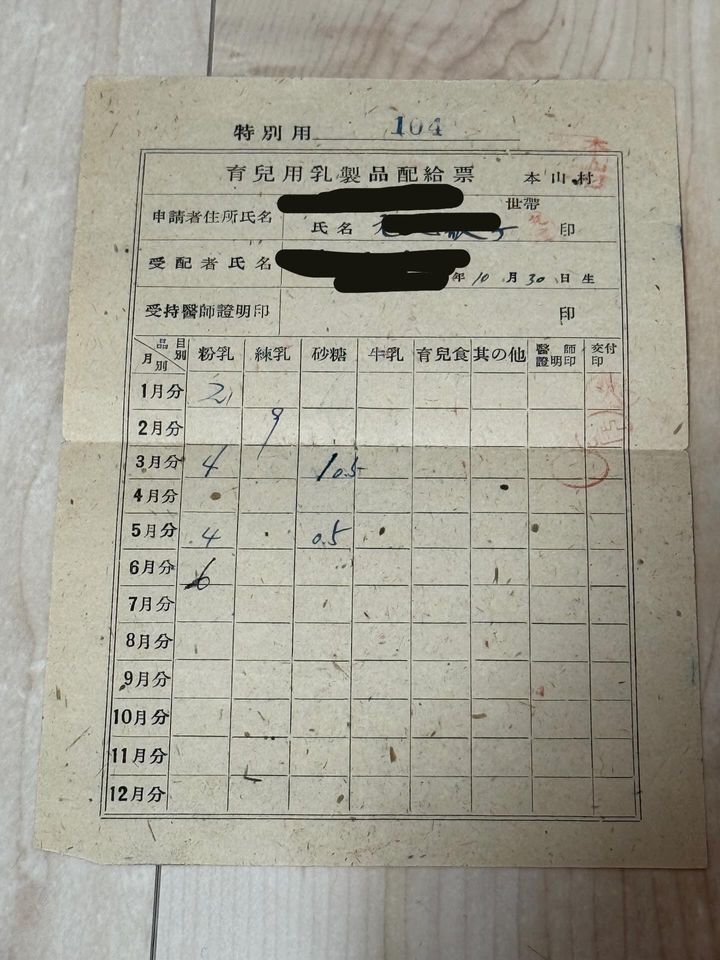 特別用 104
育兒用乳製品配給票 本山村
申請者住所氏名 世帶
氏名 印
受配者氏名 年10月30日生
受持醫師證明印 印
品目別 月別 粉乳 練乳 砂糖 牛乳 育兒食 其の他 醫師證明印 交付印
1月分 2
2月分 9
3月分 4 10.5
4月分
5月分 4 0.5
6月分 6
7月分
8月分
9月分
10月分
11月分
12月分